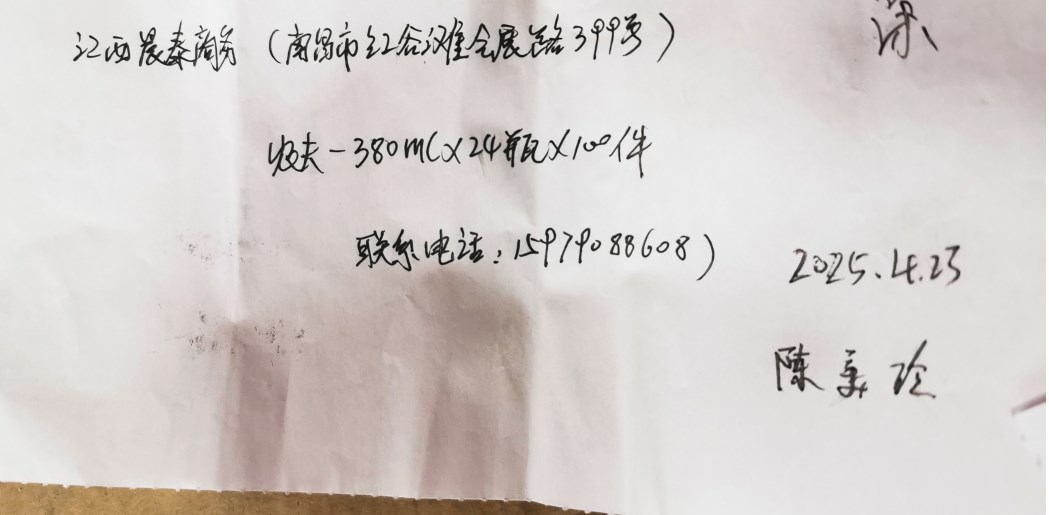 陈
江西晨泰商务（南昌市红谷滩会展路399号）
收去－380ml×24瓶×100件
联系电话：15979088608）
2025.4.23
陈美玲